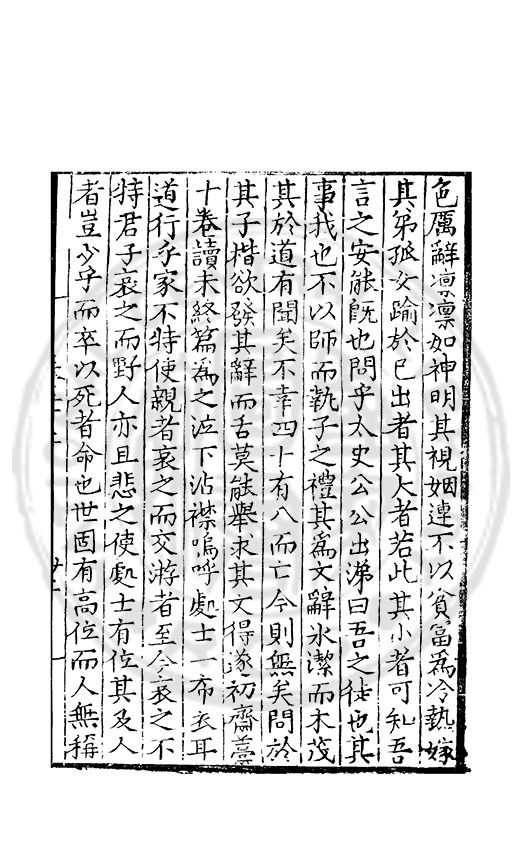 色厲辭凛凛如神明其視姻連不以貧富爲冷熱嫁
其弟孤女踰於已出者其大者若此其小者可知吾
言之安能旣也問乎太史公公出涕曰吾之徒也其
事我也不以師而執子之禮其爲文辭氷潔而木茂
其於道有聞矣不幸四十有八而亡今則無矣問於
其子楷欲發其辭而舌莫能舉求其文得遂初齋藁
十卷讀未終篇爲之泣下沾襟嗚呼處士一布衣耳
道行乎家不特使親者哀之而交游者至今哀之不
特君子哀之而野人亦且悲之使處士有位其及人
者豈少乎而卒以死者命也世固有高位而人無稱